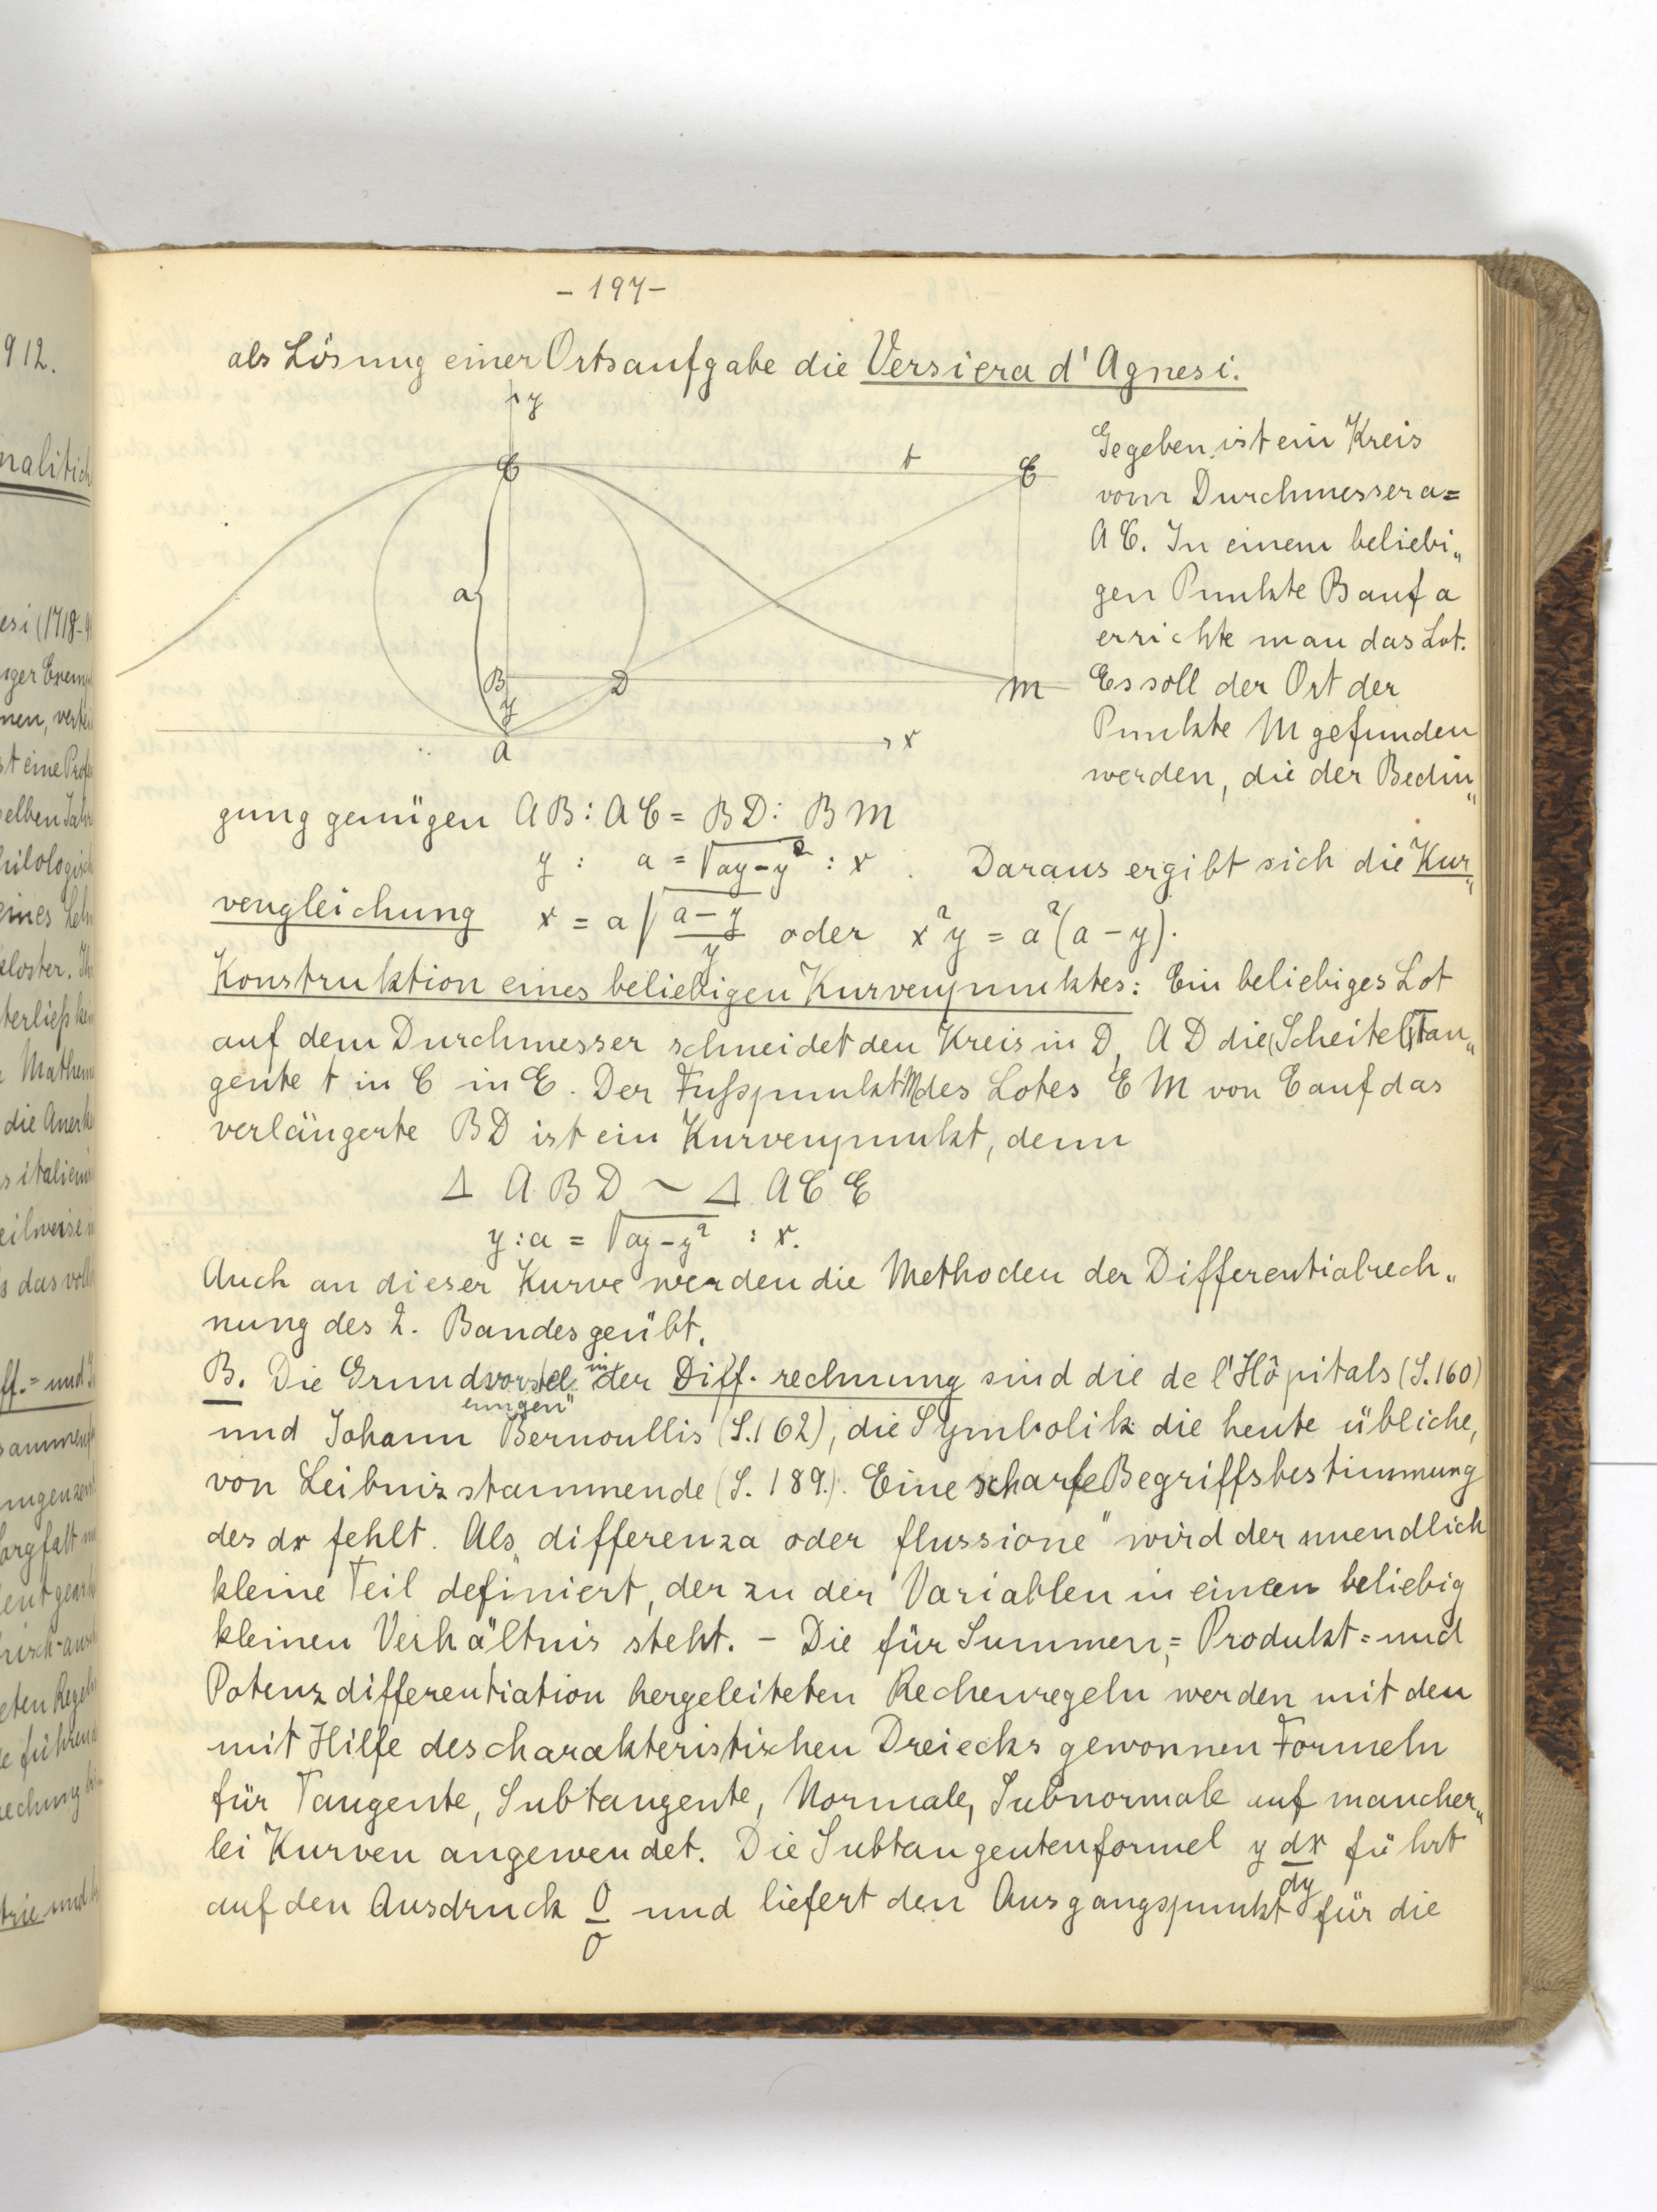 - 197 -
als Lösung einer Ortsaufgabe die Versiera d'Agnesi.
y
C
t
E
a
B
D
M
y
A
x
Gegeben ist ein Kreis
vom Durchmesser a=
AC. In einem beliebi„
gen Punkte B auf a
errichte man das Lot.
Es soll der Ort der
Punkte M gefunden
werden, die der Bedin„
gung genügen AB : AC = BD : BM
y : a = √ay-y² : x . Daraus ergibt sich die Kur„
vengleichung x = a √(a-y)/y oder x²y = a²(a-y).
Konstruktion eines beliebigen Kurvenpunktes: Ein beliebiges Lot
auf dem Durchmesser schneidet den Kreis in D, AD die (Scheitel)Tan„
gente t in C in E. Der Fusspunkt M des Lotes EM von E auf das
verlängerte BD ist ein Kurvenpunkt, denn
Δ ABD ~ Δ ACE
y : a = √ay-y² : x.
Auch an dieser Kurve werden die Methoden der Differentialrech„
nung des 2. Bandes geübt.
B. Die Grundvorstel„ in der Diff. rechnung sind die de l'Hôpitals (S. 160)
lungen
und Johann Bernoullis (S. 162), die Symbolik die heute übliche,
von Leibniz stammende (S. 189.). Eine scharfe Begriffsbestimmung
des dx fehlt. Als „differenza oder flussione" wird der unendlich
kleine Teil definiert, der zu der Variablen in einem beliebig
kleinen Verhältnis steht. - Die für Summen,= Produkt= und
Potenzdifferentiation hergeleiteten Rechenregeln werden mit den
mit Hilfe des charakteristischen Dreiecks gewonnen Formeln
für Tangente, Subtangente, Normale, Subnormale auf mancher„
lei Kurven angewendet. Die Subtangentenformel y dx/dy führt
auf den Ausdruck 0/0 und liefert den Ausgangspunkt für die
912.